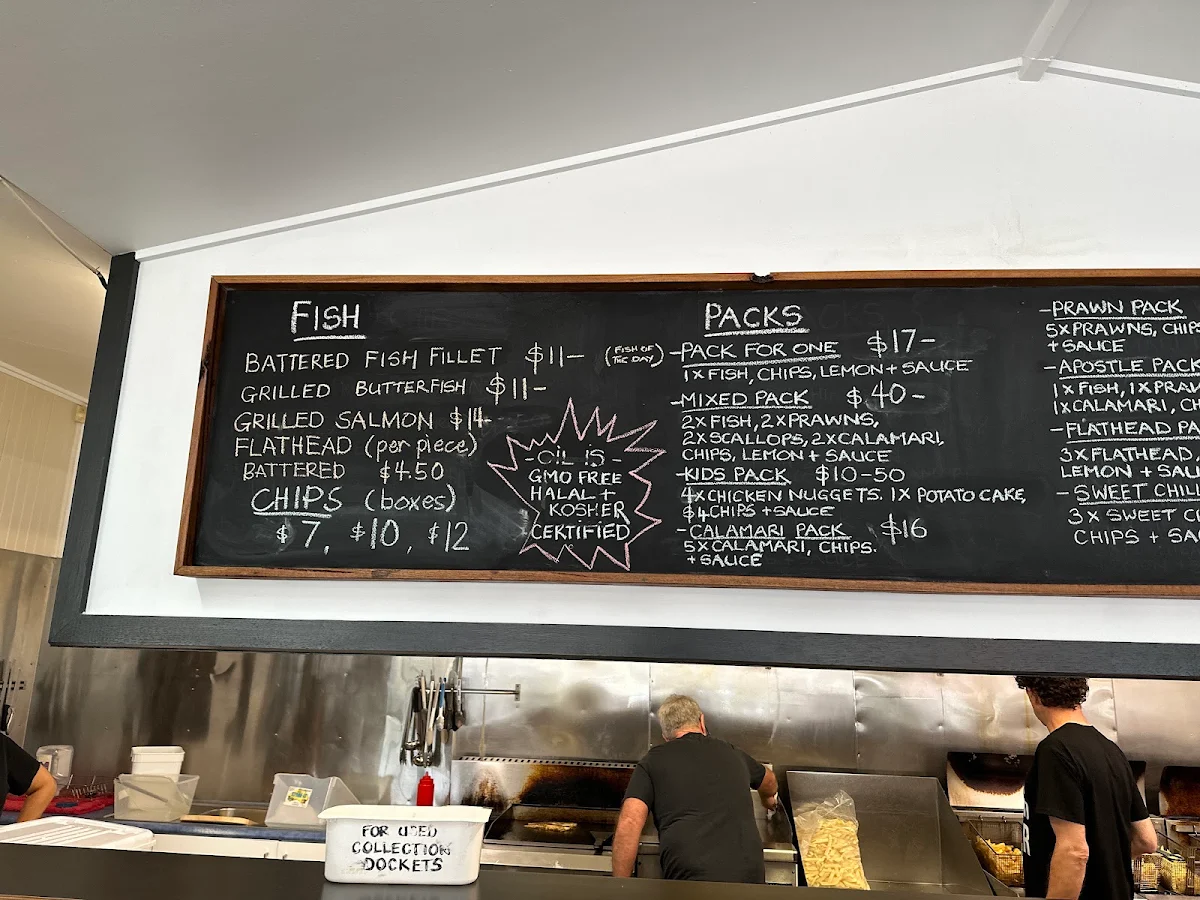 FISH
BATTERED FISH FILLET $11- (FISH OF THE DAY)
GRILLED BUTTERFISH $11-
GRILLED SALMON $14-
FLATHEAD (per piece)
BATTERED $4.50
CHIPS (boxes)
$7, $10, $12
-OIL IS-
GMO FREE
HALAL +
KOSHER
CERTIFIED
PACKS
-PACK FOR ONE $17-
1X FISH, CHIPS, LEMON + SAUCE
-MIXED PACK $40-
2X FISH, 2X PRAWNS,
2X SCALLOPS, 2X CALAMARI,
CHIPS, LEMON + SAUCE
-KIDS PACK $10-50
4X CHICKEN NUGGETS. 1X POTATO CAKE,
$4 CHIPS + SAUCE
-CALAMARI PACK $16
5X CALAMARI, CHIPS.
+ SAUCE
-PRAWN PACK
5X PRAWNS, CHIPS
+ SAUCE
-APOSTLE PACK
1X FISH, 1X PRAW
1X CALAMARI, CH
-FLATHEAD PA
3X FLATHEAD,
LEMON + SAU
-SWEET CHIL
3X SWEET C
CHIPS + SA
FOR USED
COLLECTION
DOCKETS